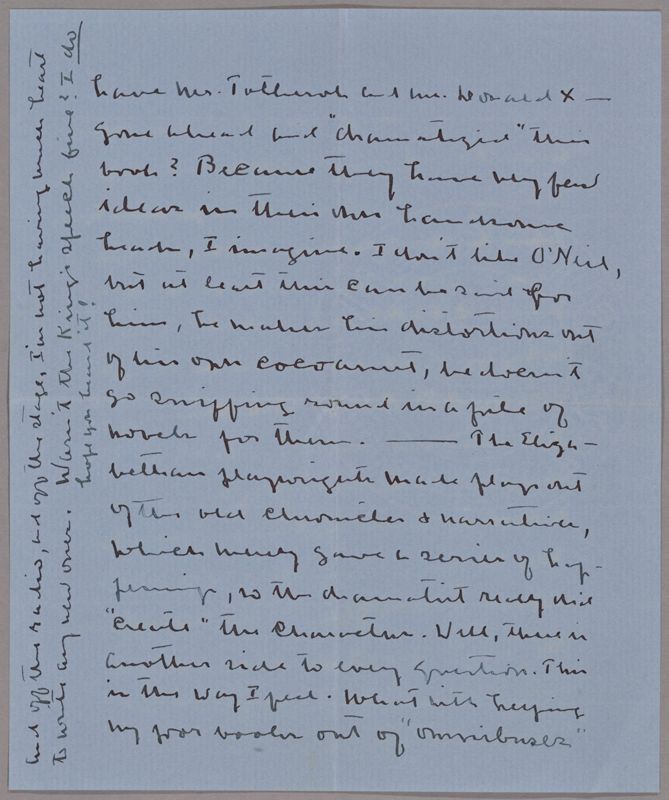 have Mr. Totheroh and Mr. Donald X —
gone ahead and "dramatized" this
book? Because they have very few
ideas in their own handsome
heads, I imagine. I don't like O'Neil,
but at least this can be said for
him, he makes his distortions out
of his own cocoanut, he doesn't
go sniffing round in a pile of
novels for them. — The Eliza-
bethan playwrights made plays out
of the old chronicles & narratives,
which merely gave a series of hap-
penings, so the dramatist really did
"create" the character. Well, there is
another side to every question. This
is the way I feel. What with keeping
my poor books out of "omnibuses"
and off the radio, and off the stage, I'm not having much heart
to write any new ones. Wasn't the King's speech fine? I do
hope you heard it!